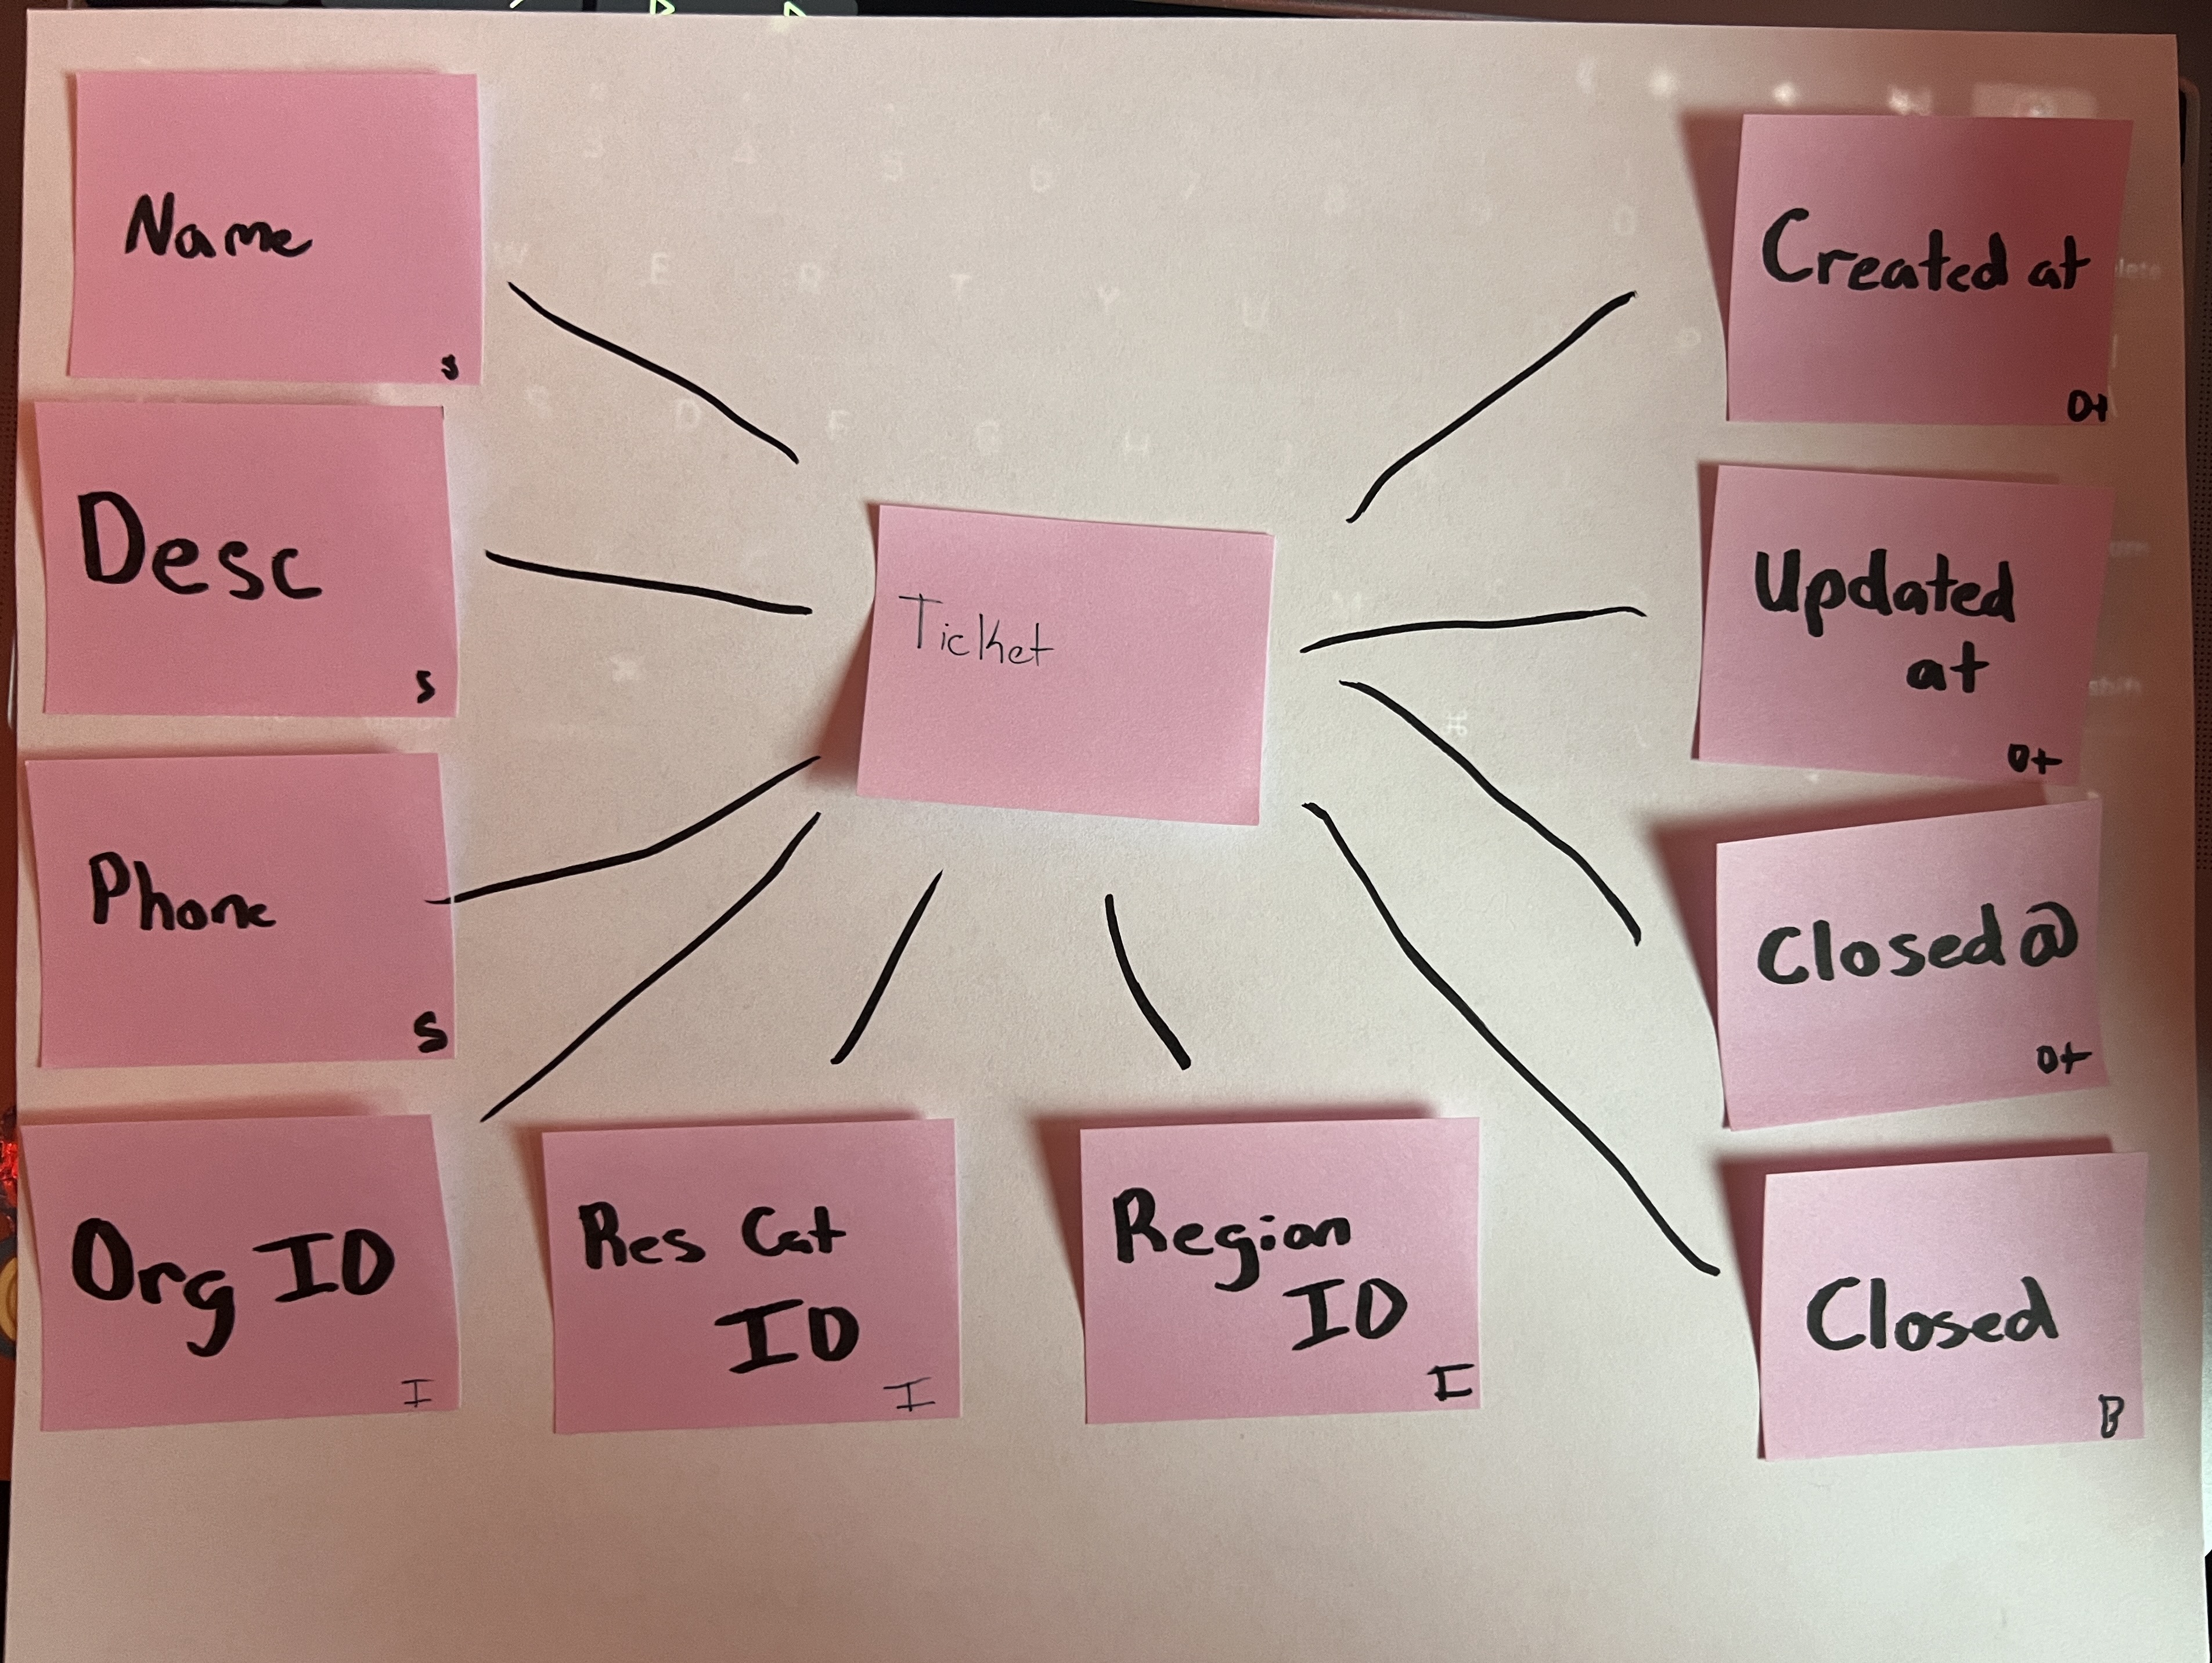 Name
s
Desc
s
Phone
S
Org ID
I
Res Cat
ID
I
Region
ID
I
Ticket
Created at
Dt
Updated
at
Dt
Closed @
Dt
Closed
B